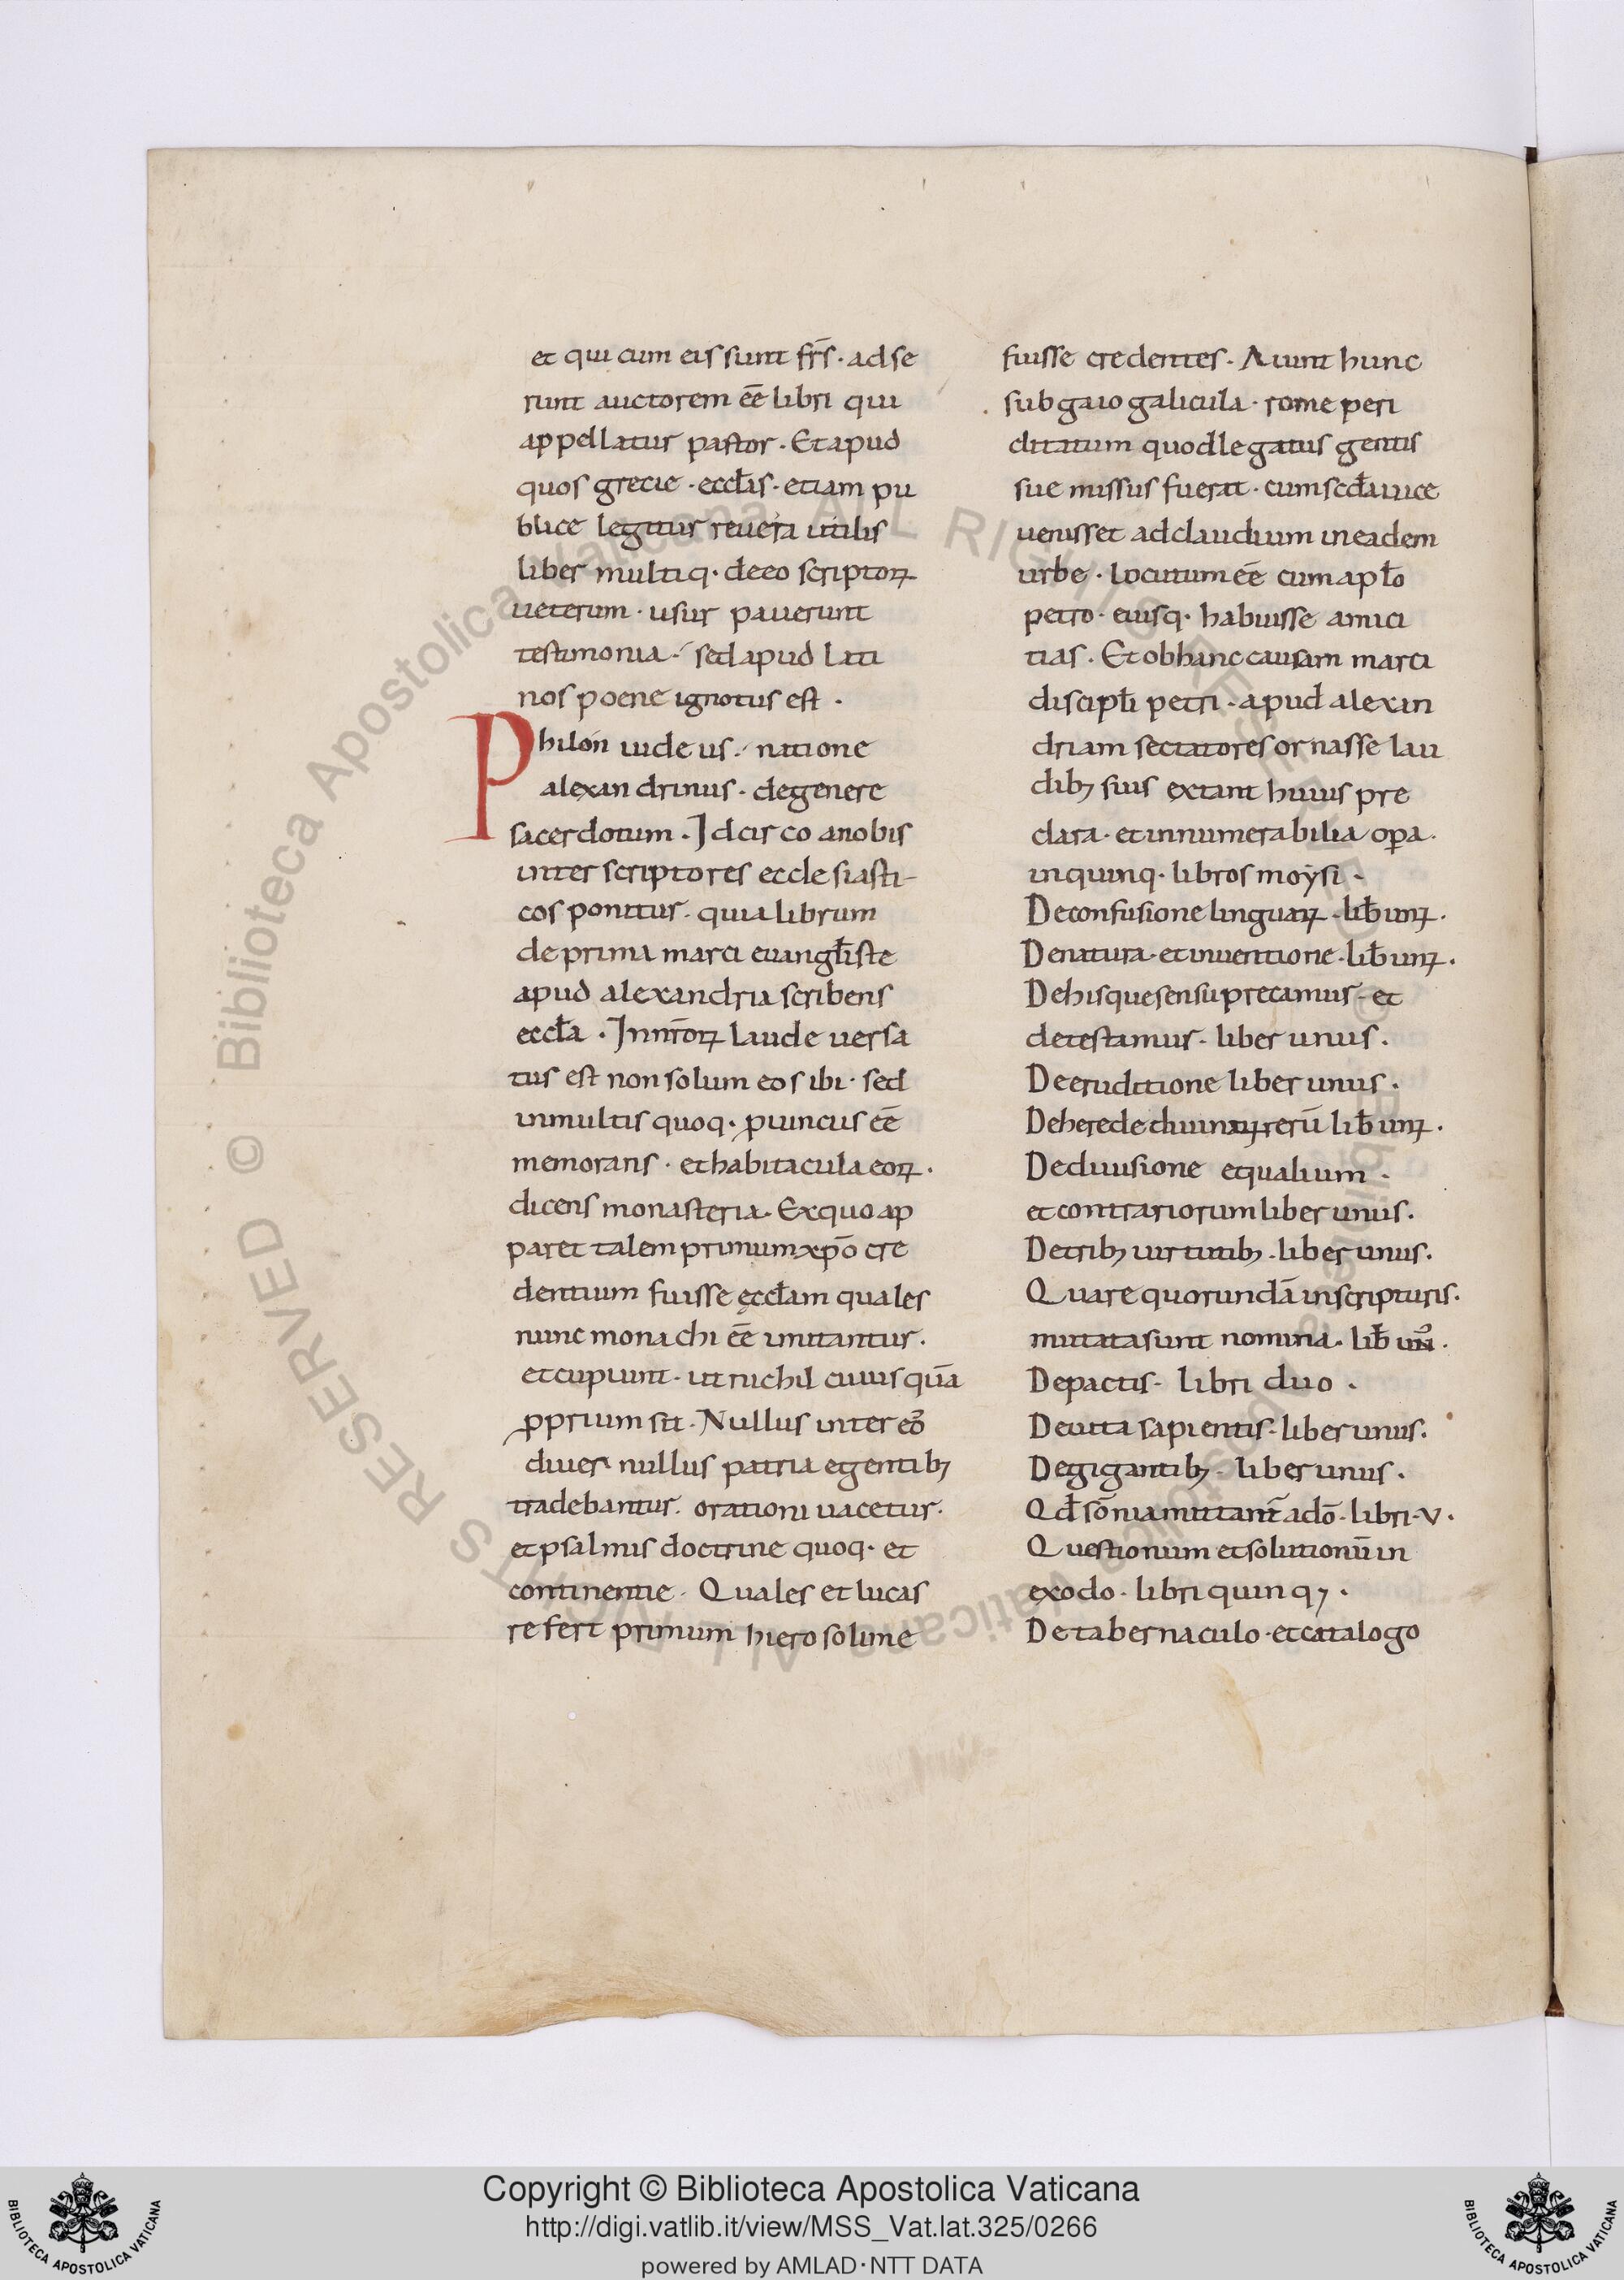 et qui cum eis sunt fr̄s · adse
runt auctorem eē libri qui
appellatur pastor · Et apud
quos grecie · eccƚis · etiam pu
blice legitur revera utilis
liber multiq · de eo scriptoꝝ
ueterum · usur pauerunt
testimonia · sed apud lati
nos poene ignotus est ·
Philon iudeus · natione
alexandrinus · degenere
sacerdotum · Idcirco anobis
inter scriptores ecclesiasti-
cos ponitur · quia librum
de prima marci euangƚiste
apud alexandria scribens
eccƚa · In nr̄oꝝ laude uersa
tus est non solum eos ibi · sed
inmultis quoq · ꝓuincus eē
memorans · et habitacula eoꝝ ·
dicens monasteria · Exquo ap
paret talem primum xp̄o cre
dentium fuisse ęccƚam quales
nunc monachi eē imitantur ·
et cupiunt · ut nichil cuius quā
ꝓprium sit · Nullus inter eoꝰ
diues · nullus patria egentibꝫ
tradebantur · orationi uacetur ·
et psalmis doctrine quoq · et
continentie · Quales et lucas
refert primum hierosolime
fuisse credentes · Aiunt hunc
sub gaio galicula · rome peri
clitatum quod legatus gentis
sue missus fuerat · cum secƚa uice
uenisset ad claudium in eadem
urbe · locutum eē cum apƚo
petro · eiusq · habuisse amici
tias · Et ob hanc causam marci
discipƚi petri · apud alexan
driam sectatores ornasse lau
dibꝫ suis extant huius pre
clara · et innumerabilia oꝑa ·
in quinq · libros moẏsi ·
De confusione linguaꝝ · liƀ unꝝ ·
De natura · et inuentione · liƀ unꝝ ·
De hisque sensu precamus · et
detestamus · liber unus ·
De eruditione liber unus ·
De herede diuinaꝝ rerū liƀ unꝝ ·
De diuisione equalium ·
et contrariorum liber unus ·
De tribꝫ uirtutibꝫ · liber unus ·
Quare quorundā inscripturis ·
mutata sunt nomina · liƀ unꝰ ·
De pactis · libri duo ·
De uita sapientis · liber unus ·
De gigantibꝫ · liber unus ·
Qđ sōnia mittant̄ adō · libri · v ·
Questionum et solutionū in
exodo · libri quinqꝫ ·
De tabernaculo · et catalogo
Copyright © Biblioteca Apostolica Vaticana
http://digi.vatlib.it/view/MSS_Vat.lat.325/0266
powered by AMLAD·NTT DATA
BIBLIOTECA APOSTOLICA VATICANA
BIBLIOTECA APOSTOLICA VATICANA